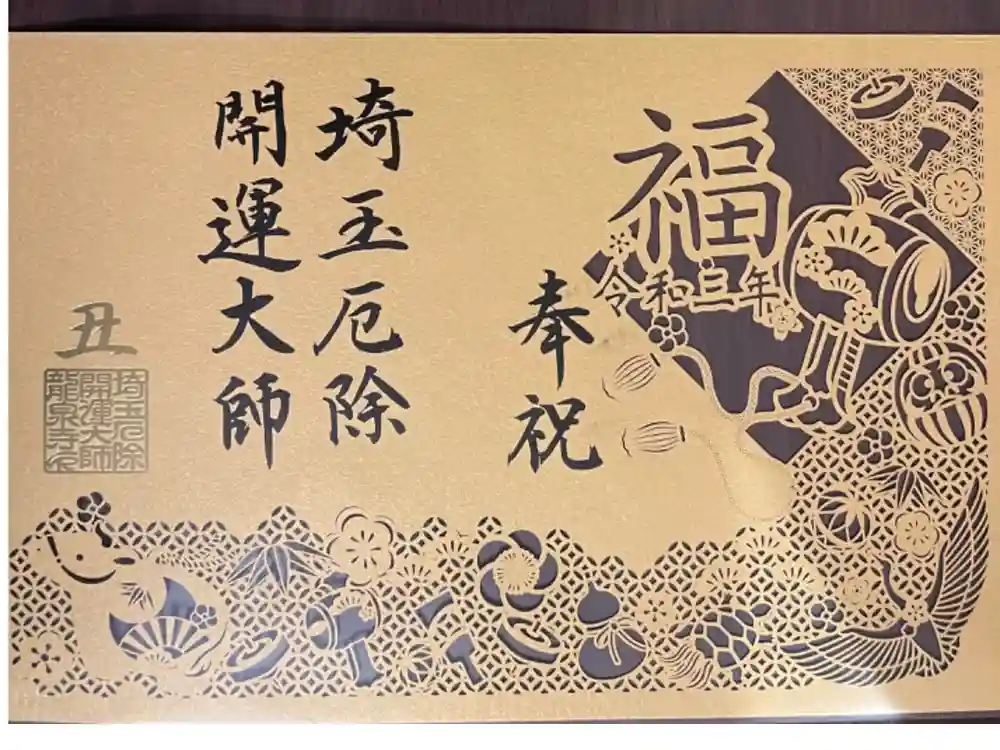 福
令和三年
奉祝
埼玉厄除
開運大師
丑
埼玉厄除
開運大師
龍泉寺印